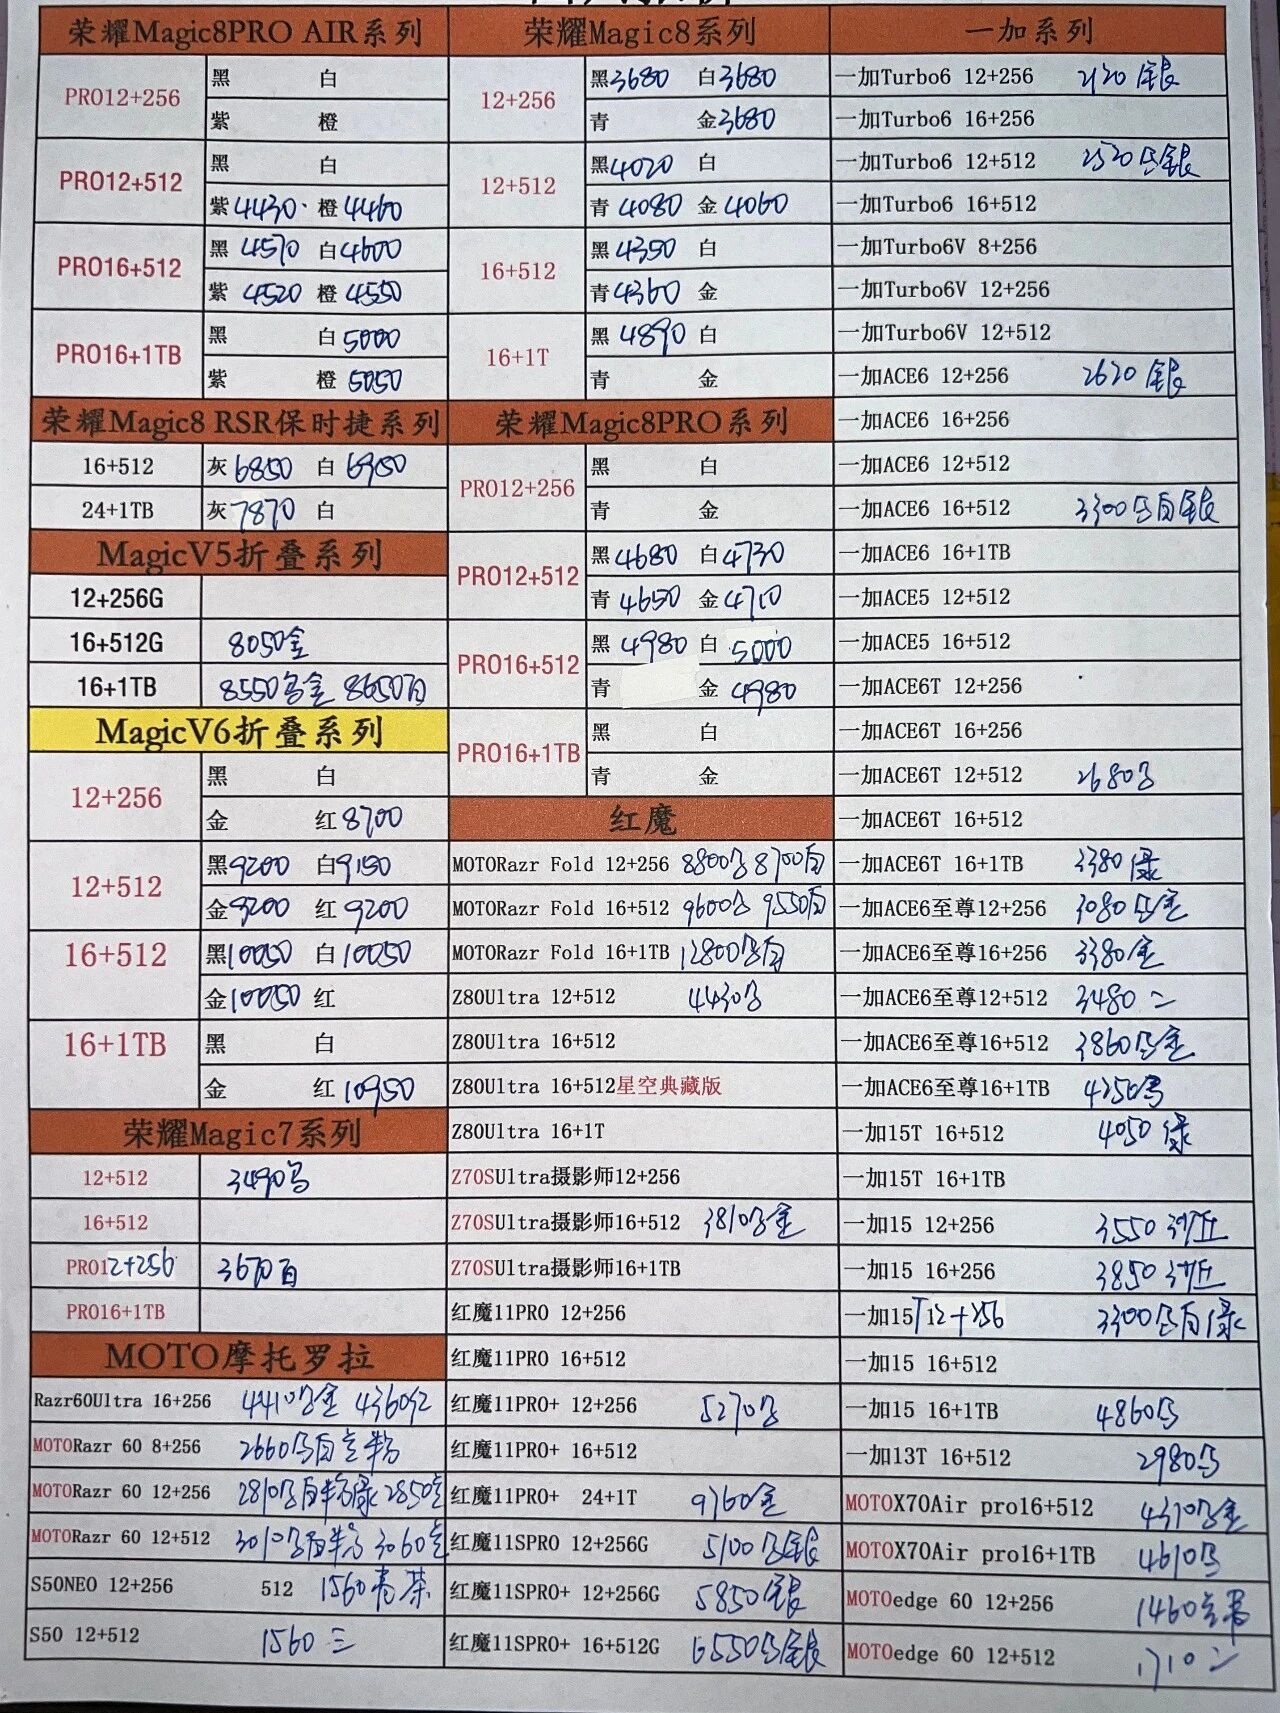 荣耀Magic8PRO AIR系列
PRO12+256
黑 白
紫 橙
PRO12+512
黑 白
紫4430 橙4460
PRO16+512
黑4570 白4600
紫4520 橙4550
PRO16+1TB
黑 白5000
紫 橙5050
荣耀Magic8 RSR保时捷系列
16+512 灰6850 白6950
24+1TB 灰7870 白
MagicV5折叠系列
12+256G
16+512G 8050金
16+1TB 8550乌金 8650白
MagicV6折叠系列
12+256
黑 白
金 红8700
12+512
黑9200 白9150
金9200 红9200
16+512
黑10050 白10050
金10050 红
16+1TB
黑 白
金 红10950
荣耀Magic7系列
12+512 3490乌
16+512
PRO12+256 3670白
PRO16+1TB
MOTO摩托罗拉
Razr60Ultra 16+256 4410乌金 4360红
MOTORazr 60 8+256 2660乌白
MOTORazr 60 12+256 2810乌白 绿 2850
MOTORazr 60 12+512 3010乌白 3060
S50NEO 12+256 512 1560 茶
S50 12+512 1560 三
荣耀Magic8系列
12+256
黑3680 白3680
青 金3680
12+512
黑4020 白
青4080 金4060
16+512
黑4350 白
青4360 金
16+1T
黑4890 白
青 金
荣耀Magic8PRO系列
PRO12+256
黑 白
青 金
PRO12+512
黑4680 白4730
青4650 金4710
PRO16+512
黑4980 白5000
青 金4980
PRO16+1TB
黑 白
青 金
红魔
MOTORazr Fold 12+256 8800乌 8700白
MOTORazr Fold 16+512 9600乌 9550白
MOTORazr Fold 16+1TB 12800乌白
Z80Ultra 12+512 4430乌
Z80Ultra 16+512
Z80Ultra 16+512星空典藏版
Z80Ultra 16+1T
Z70SUltra摄影师12+256
Z70SUltra摄影师16+512 3810乌金
Z70SUltra摄影师16+1TB
红魔11PRO 12+256
红魔11PRO 16+512
红魔11PRO+ 12+256 5270乌
红魔11PRO+ 16+512
红魔11PRO+ 24+1T 9760金
红魔11SPRO 12+256G 5100乌银
红魔11SPRO+ 12+256G 5850银
红魔11SPRO+ 16+512G 6550乌银
一加系列
一加Turbo6 12+256 2120银
一加Turbo6 16+256
一加Turbo6 12+512 2520乌银
一加Turbo6 16+512
一加Turbo6V 8+256
一加Turbo6V 12+256
一加Turbo6V 12+512
一加ACE6 12+256 2620银
一加ACE6 16+256
一加ACE6 12+512
一加ACE6 16+512 3300乌白银
一加ACE6 16+1TB
一加ACE5 12+512
一加ACE5 16+512
一加ACE6T 12+256
一加ACE6T 16+256
一加ACE6T 12+512 2680乌
一加ACE6T 16+512
一加ACE6T 16+1TB 3380绿
一加ACE6至尊12+256 3080乌金
一加ACE6至尊16+256 3380金
一加ACE6至尊12+512 3480 二
一加ACE6至尊16+512 3860乌金
一加ACE6至尊16+1TB 4250乌
一加15T 16+512 4050绿
一加15T 16+1TB
一加15 12+256 3550沙丘
一加15 16+256 3850沙丘
一加15T12+256 3300乌白绿
一加15 16+512
一加15 16+1TB 4860乌
一加13T 16+512 2980乌
MOTOX70Air pro16+512 4370乌金
MOTOX70Air pro16+1TB 4610乌
MOTOedge 60 12+256 1460
MOTOedge 60 12+512 1710 二